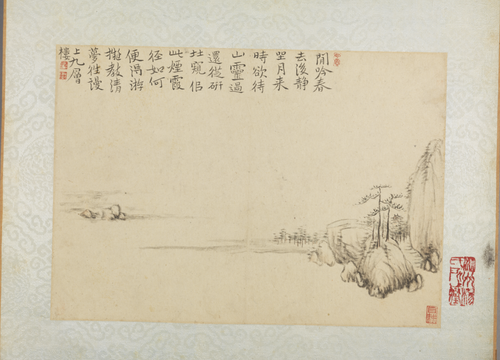 閒吟春
去後靜
望月來
時欲待
山靈過
還從研
北窺侶
此煙霞
徑如何
便得游
擬教清
夢往謾
上九層
樓